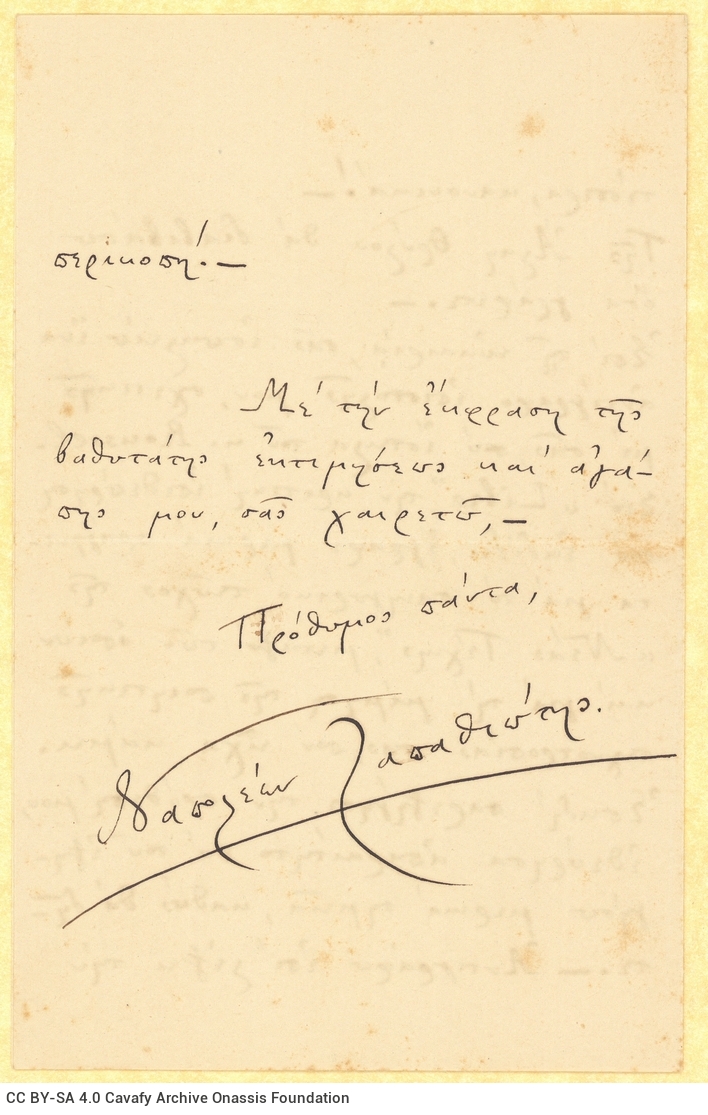 περικοπή!—
Μὲ τὴν ἔκφραση τῆς
βαθυτάτης ἐκτιμήσεως καὶ ἀγά-
πης μου, σᾶς χαιρετῶ,—
Πρόθυμος πάντα,
Ναπολέων Λαπαθιώτης.
CC BY-SA 4.0 Cavafy Archive Onassis Foundation